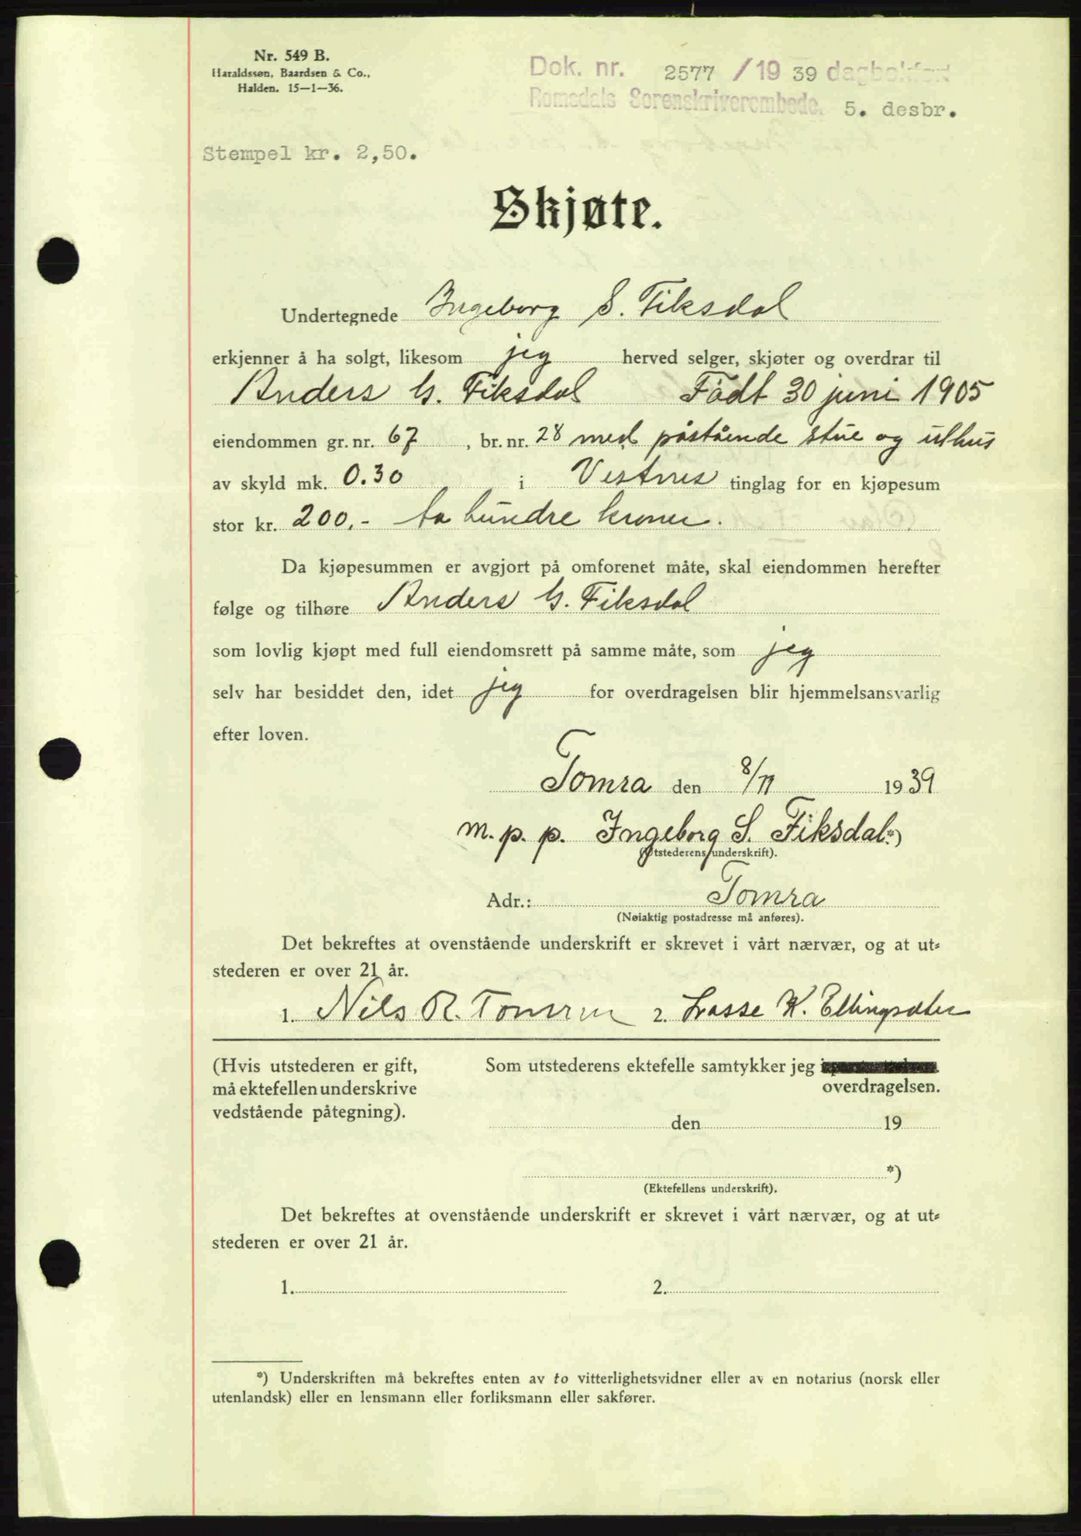 Nr. 549 B.
Haraldssøn, Baardsen & Co.,
Halden. 15—1—36.
Dok. nr. 2577 /19 39 dagbokført
Romsdals Sorenskriverembede. 5. desbr.
Stempel kr. 2,50.
Skjøte.
Undertegnede Ingeborg S. Fiksdal
erkjenner å ha solgt, likesom jeg herved selger, skjøter og overdrar til
Anders G. Fiksdal Født 30 juni 1905
eiendommen gr. nr. 67, br. nr. 28 med påstående stue og uthus
av skyld mk. 0.30 i Vestnes tinglag for en kjøpesum
stor kr. 200.- to hundre kroner.
Da kjøpesummen er avgjort på omforenet måte, skal eiendommen herefter
følge og tilhøre Anders G. Fiksdal
som lovlig kjøpt med full eiendomsrett på samme måte, som jeg
selv har besiddet den, idet jeg for overdragelsen blir hjemmelsansvarlig
efter loven.
Tomra den 8/11 1939
m. p. p. Ingeborg S. Fiksdal *)
(Utstederens underskrift).
Adr.: Tomra
(Nøiaktig postadresse må anføres).
Det bekreftes at ovenstående underskrift er skrevet i vårt nærvær, og at ut-
stederen er over 21 år.
1. Nils R. Tomren 2. Lasse K. Ellingsæter
(Hvis utstederen er gift, Som utstederens ektefelle samtykker jeg
må ektefellen underskrive overdragelsen.
vedstående påtegning).
den 19
*)
(Ektefellens underskrift).
Det bekreftes at ovenstående underskrift er skrevet i vårt nærvær, og at ut-
stederen er over 21 år.
1. 2.
*) Underskriften må bekreftes enten av to vitterlighetsvidner eller av en notarius (norsk eller
utenlandsk) eller en lensmann eller forliksmann eller sakfører.